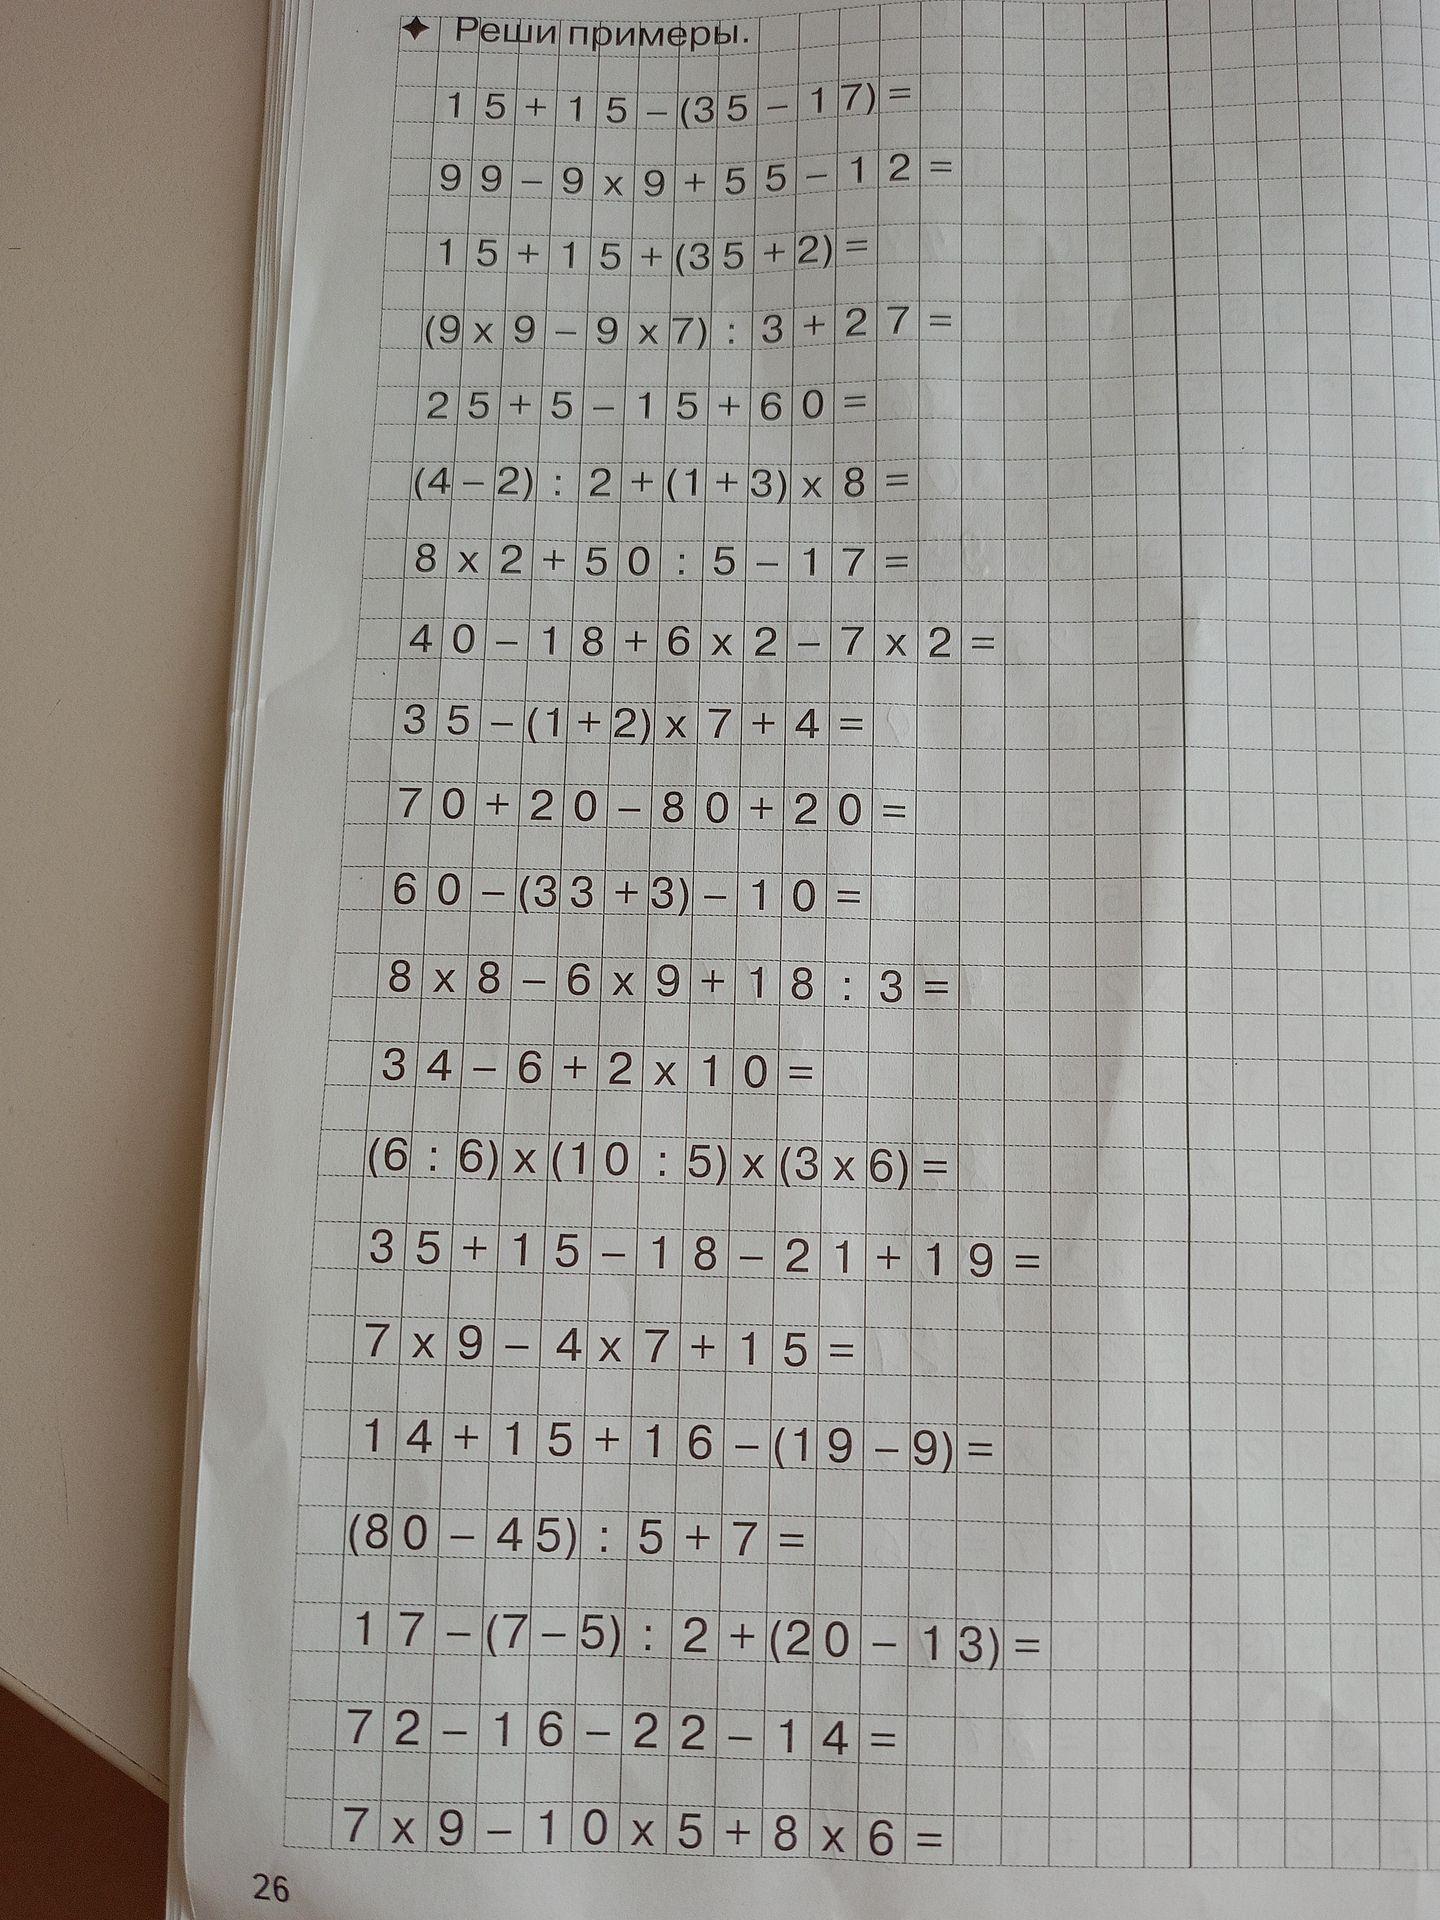 ✦ Реши примеры.
15+15–(35–17)=
99–9x9+55–12=
15+15+(35+2)=
(9x9–9x7):3+27=
25+5–15+60=
(4–2):2+(1+3)x8=
8x2+50:5–17=
40–18+6x2–7x2=
35–(1+2)x7+4=
70+20–80+20=
60–(33+3)–10=
8x8–6x9+18:3=
34–6+2x10=
(6:6)x(10:5)x(3x6)=
35+15–18–21+19=
7x9–4x7+15=
14+15+16–(19–9)=
(80–45):5+7=
17–(7–5):2+(20–13)=
72–16–22–14=
7x9–10x5+8x6=
26